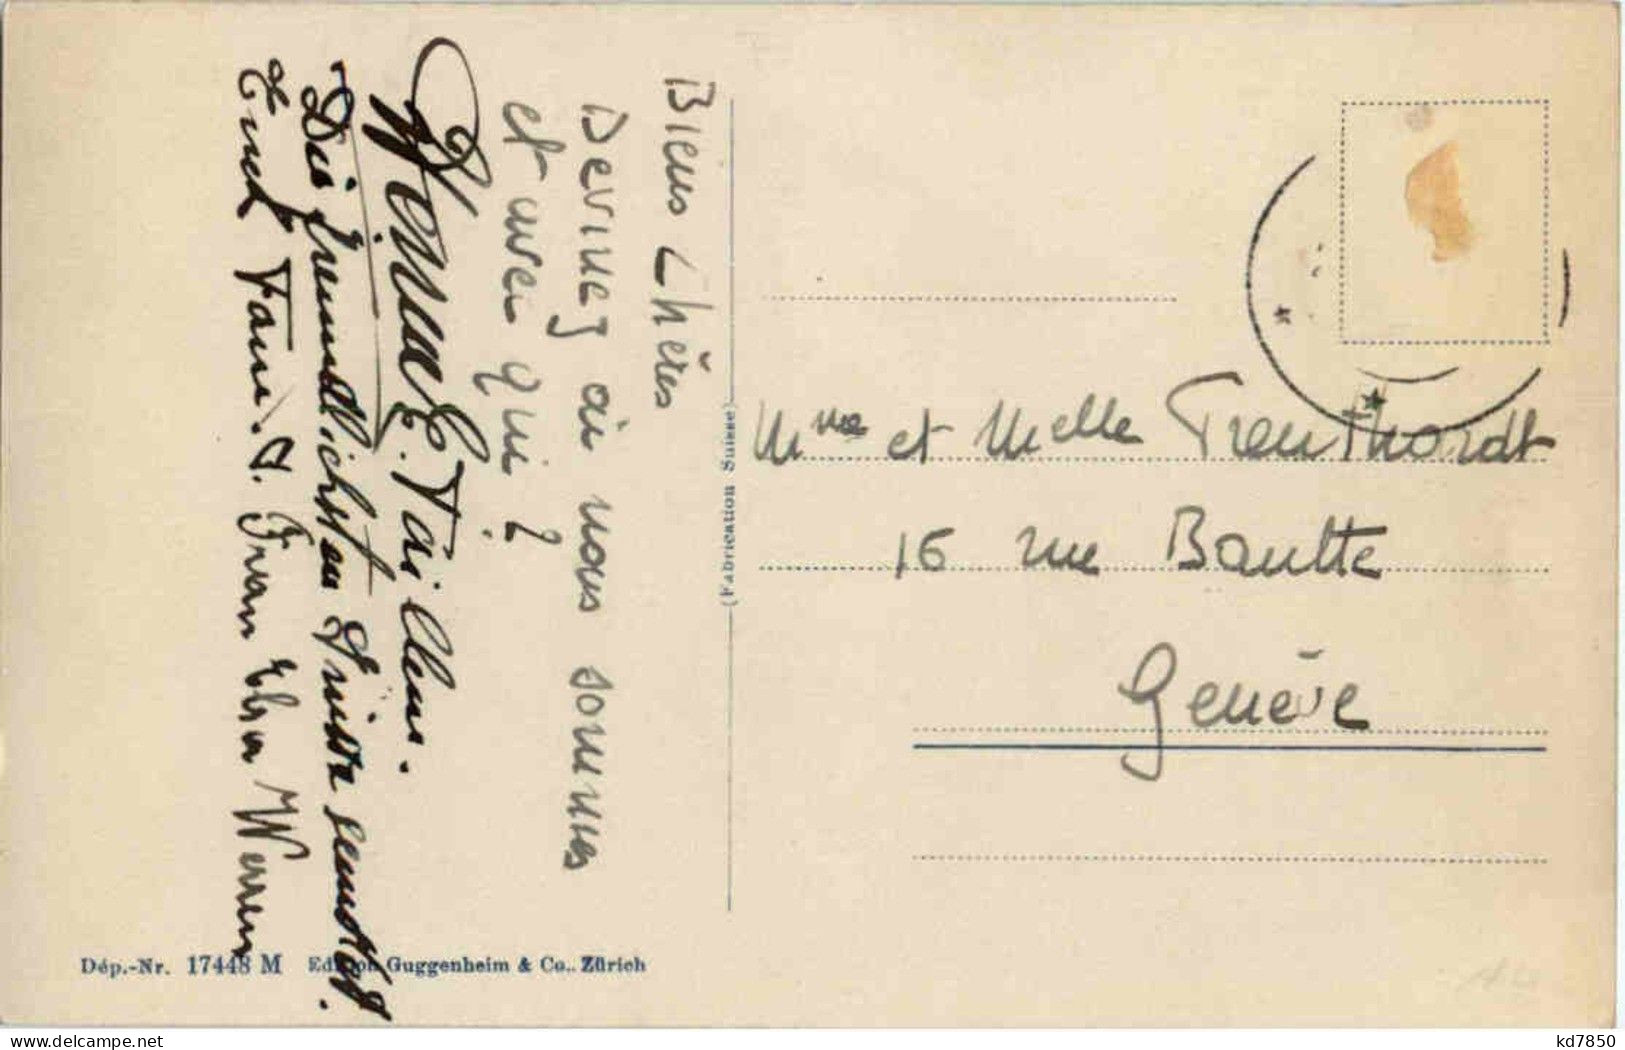 Biens Chères
Devinez où nous sommes
et avec qui?
E. Tailleur.
Die freundlichsten Grüsse sendet
Euch Fam.
(Fabrication Suisse)
Mme et Melle Treuthardt
16 rue Bautte
Genève
Dép.-Nr. 17448 M Edition Guggenheim & Co., Zürich
kd7850